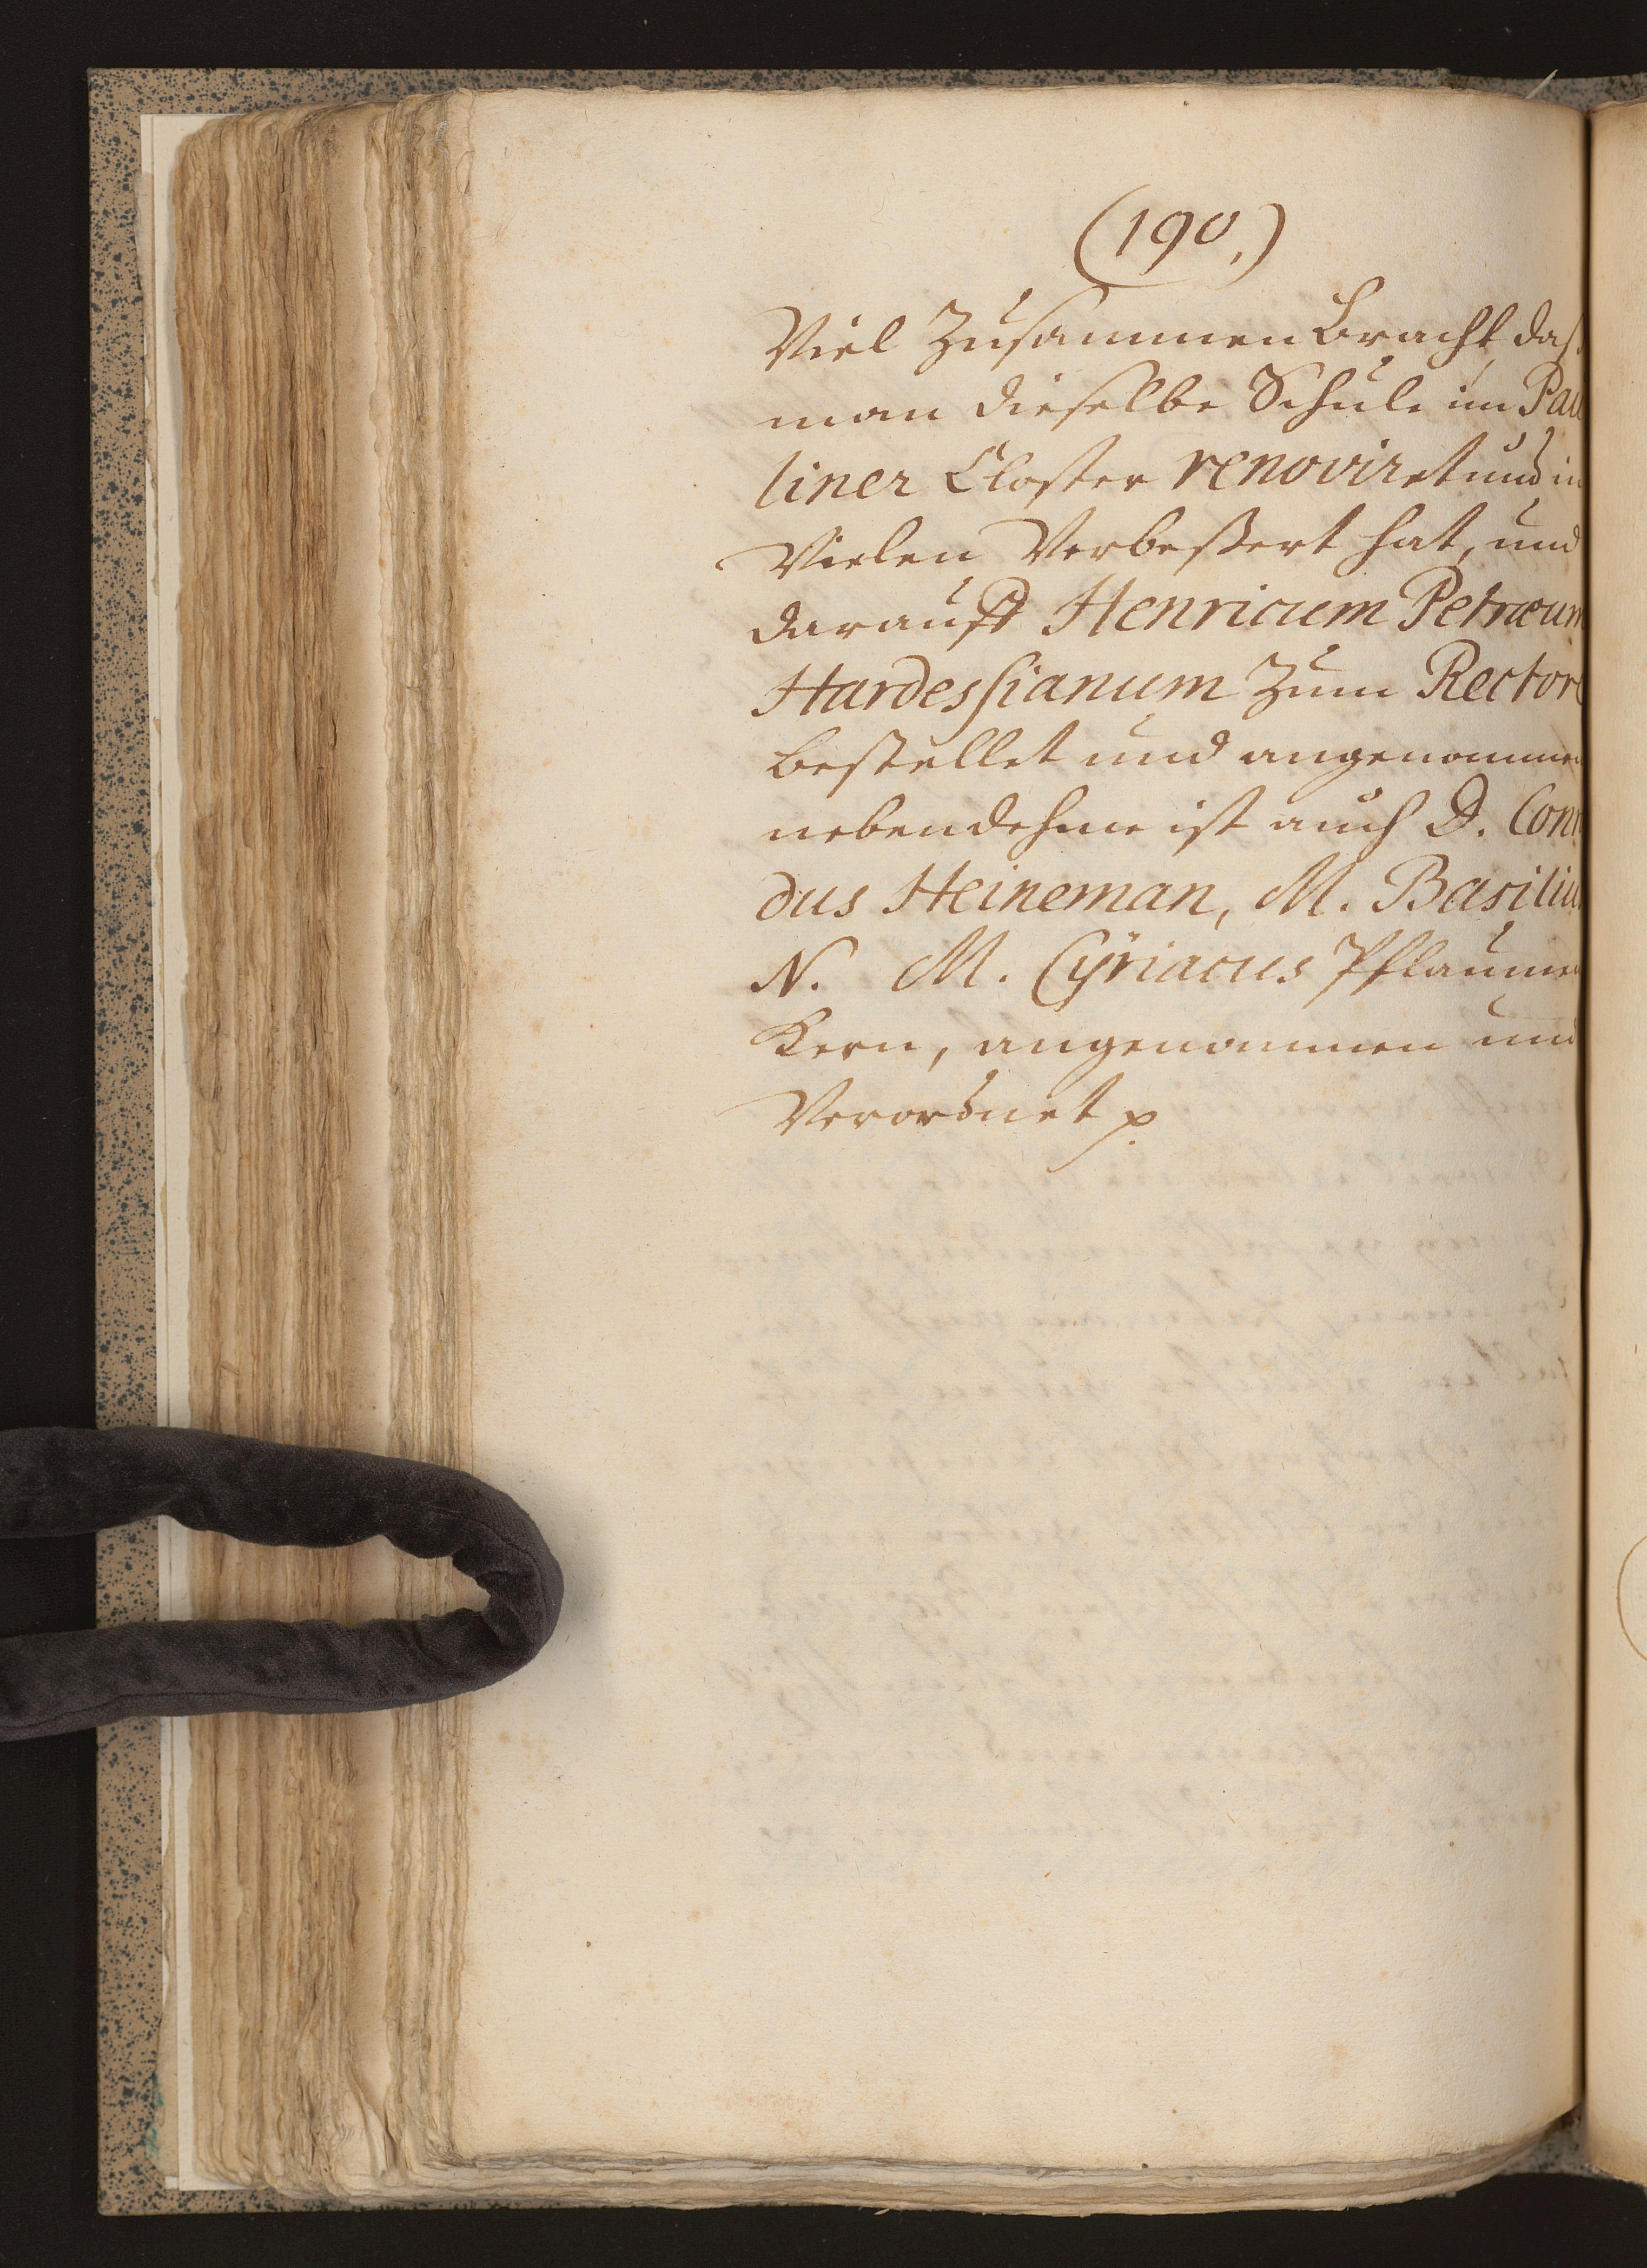 (190.)
Viel Zusammen Bracht, daß
man dieselbe Schule im Pau
liner Closter renoviret und in
Vielen Verbeßert hat, und
darauff Henricum Petræum
Hardessianum Zum Rectore
bestellet und angenommen
neben dehme ist auch D. Conr
dus Heineman, M. Basilius
N. M. Cÿriacus Pflaumen
Kern, angenommen und
Verordnet p.